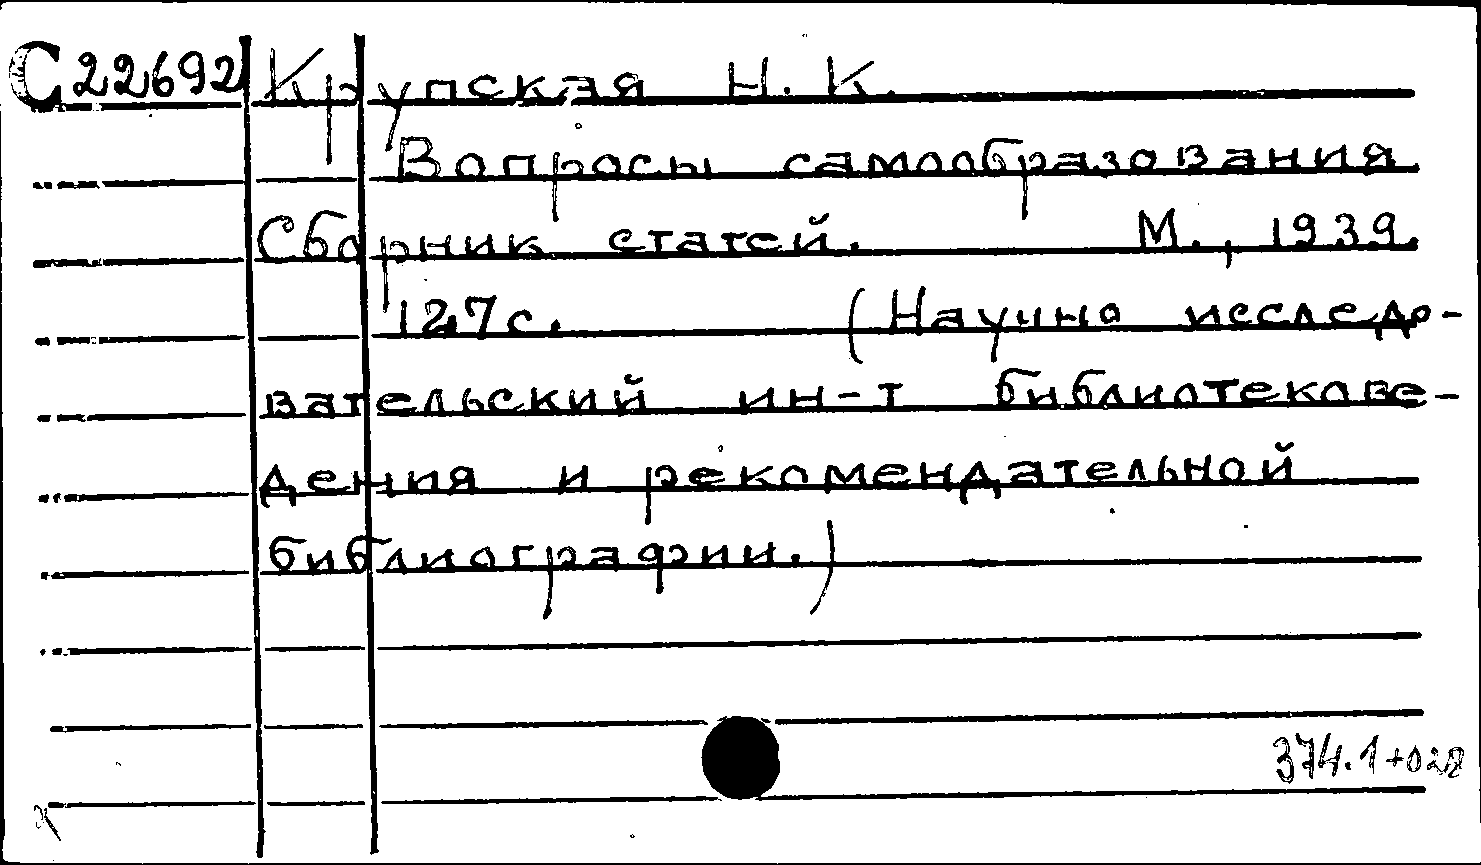 С22692 Крупская Н. К.
Вопросы самообразования
Сборник статей. М., 1939.
127с. (Научно исследо-
вательский ин-т библиотекове-
дения и рекомендательной
библиографии.)
374.1+028